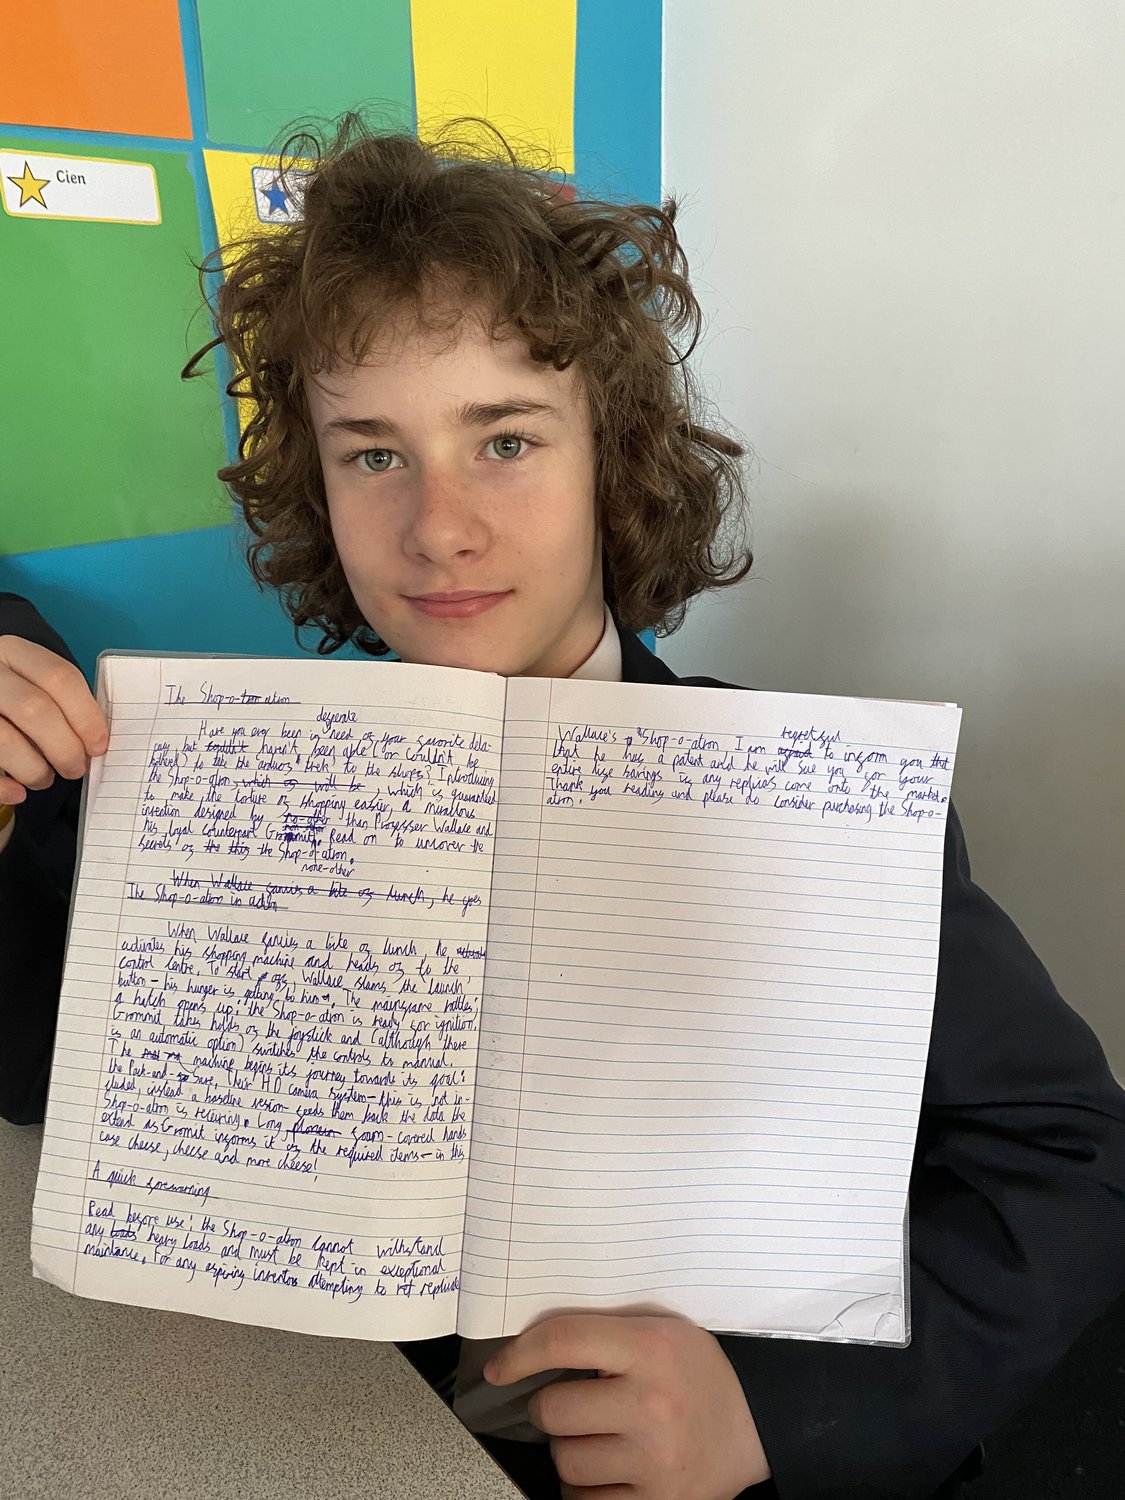 Cien
The Shop-o-tron ation
desperate
Have you ever been in need of your favorite dela-
cay but couldn't haven't been able (or couldn't be
bothered) to take the arduos "trek" to the shops? Introducing
the Shop-o-atron, which is will be, which is guaranteed
to make the torture of shopping easier, a miraclous
invention designed by no-other than Proffesser Wallace and
his loyal counterpart Grommit. Read on to uncover the
secrets of the this the Shop-o-atron.
none-other
When Wallace fancies a bite of lunch, he goes
The Shop-o-atron in action
When Wallace fancies a bite of lunch, he
activates his shopping machine and heads of to the
control centre. To start off, Wallace slams the 'launch'
button - his hunger is getting to him. The mainframe rattles;
a hatch opens up; the Shop-o-atron is ready for ignition.
Grommit takes holds of the joystick and (although there
is an automatic option) switches the controls to manual.
The machine begins its journey towards its goal:
the Pack-and-go Save. Their HD camera system - this is not in-
cluded, instead a baseline version - feeds them back the data the
Shop-o-atron is receiving. Long, foam-covered hands
extend as Gromit informs it of the required items - in this
case cheese, cheese and more cheese!
A quick forewarning
Read before use: the Shop-o-atron cannot withstand
any loads heavy loads and must be kept in exceptional
maintance. For any aspiring inventors attempting to replicate
regretful
Wallace's Shop-o-atron I am afraid to inform you that
that he has a patent and he will sue you for your
entire life savings if any replicas come onto the market.
Thank you reading and please do consider purchasing the Shop-o-
atron!